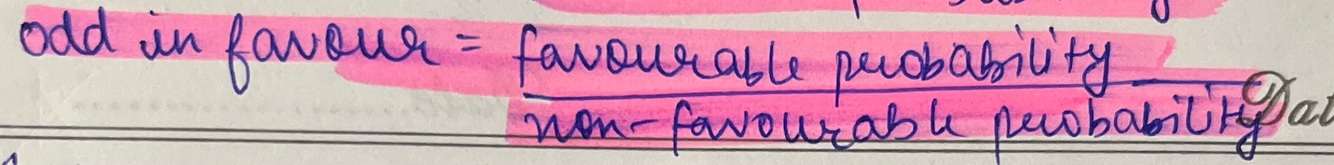 odd in favour = favourable probability
non-favourable probability
Dat